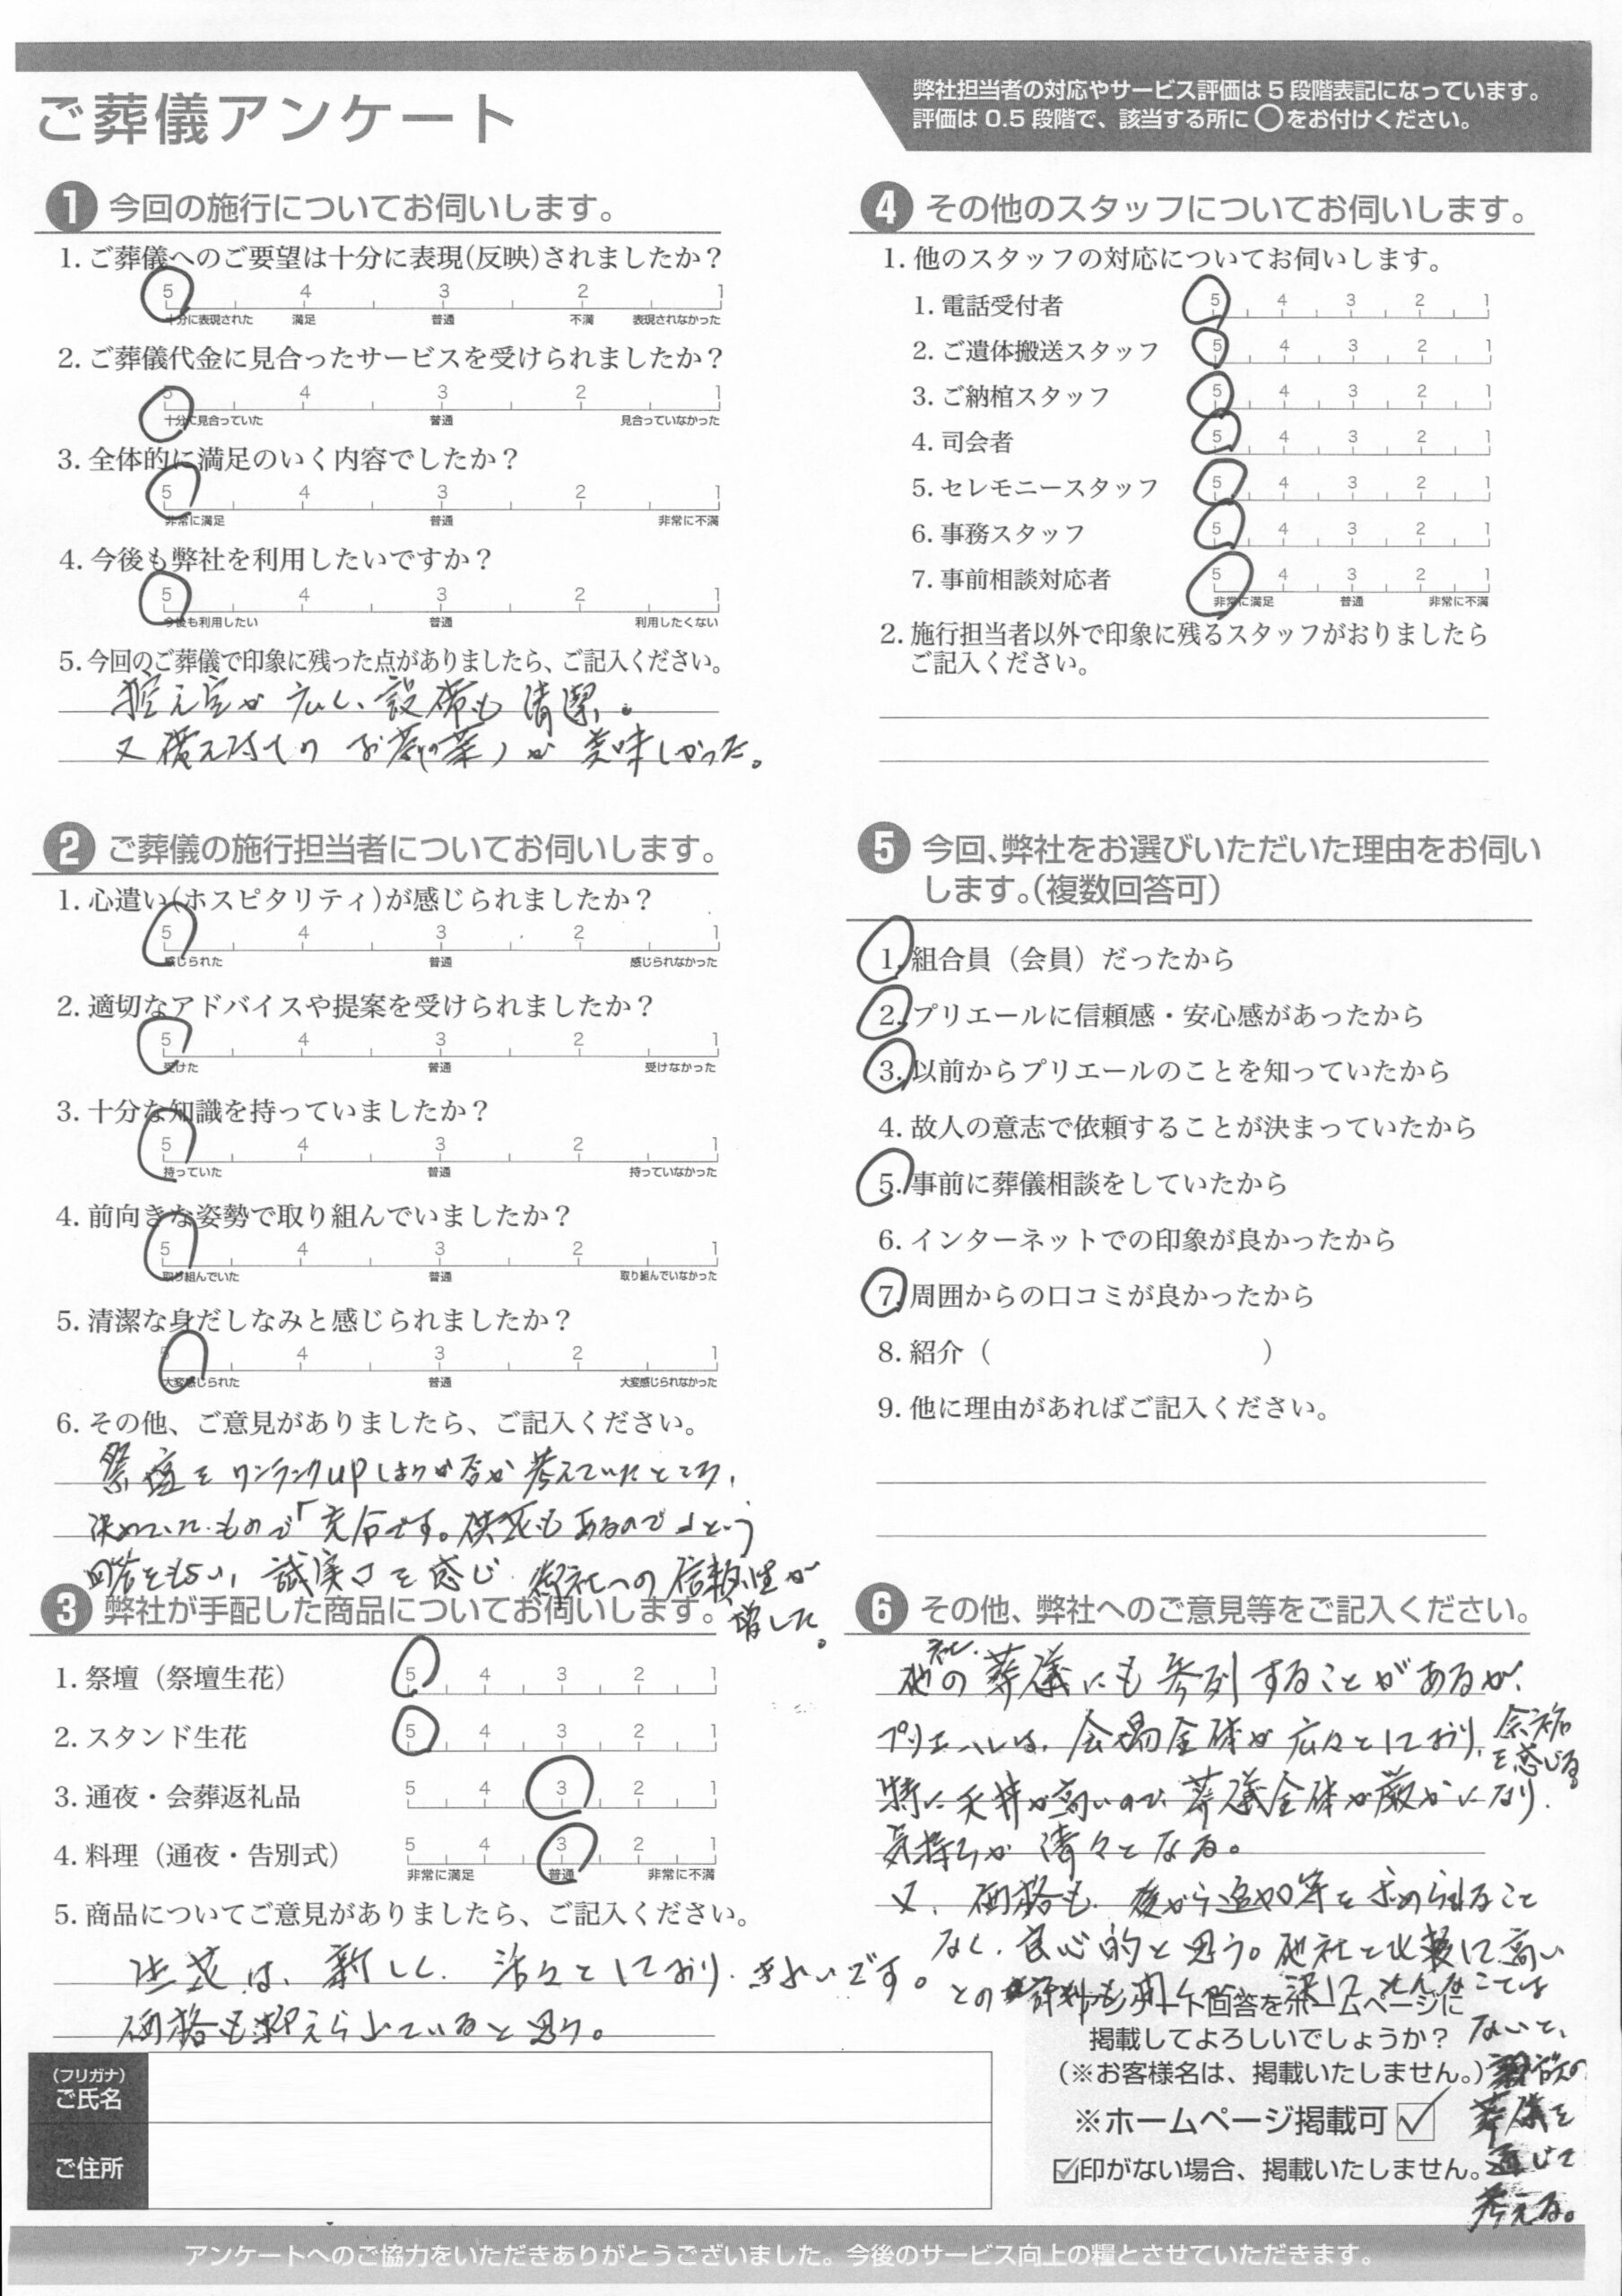 ご葬儀アンケート
弊社担当者の対応やサービス評価は 5 段階表記になっています。
評価は 0.5 段階で、該当する所に ○ をお付けください。
1 今回の施行についてお伺いします。
1. ご葬儀へのご要望は十分に表現(反映)されましたか？
5 4 3 2 1
十分に表現された 満足 普通 不満 表現されなかった
2. ご葬儀代金に見合ったサービスを受けられましたか？
5 4 3 2 1
十分に見合っていた 普通 見合っていなかった
3. 全体的に満足のいく内容でしたか？
5 4 3 2 1
非常に満足 普通 非常に不満
4. 今後も弊社を利用したいですか？
5 4 3 2 1
今後も利用したい 普通 利用したくない
5. 今回のご葬儀で印象に残った点がありましたら、ご記入ください。
控え室が広く、設備も清潔。
又備え付けのお茶(の葉)が美味しかった。
2 ご葬儀の施行担当者についてお伺いします。
1. 心遣い(ホスピタリティ)が感じられましたか？
5 4 3 2 1
感じられた 普通 感じられなかった
2. 適切なアドバイスや提案を受けられましたか？
5 4 3 2 1
受けた 普通 受けなかった
3. 十分な知識を持っていましたか？
5 4 3 2 1
持っていた 普通 持っていなかった
4. 前向きな姿勢で取り組んでいましたか？
5 4 3 2 1
取り組んでいた 普通 取り組んでいなかった
5. 清潔な身だしなみと感じられましたか？
5 4 3 2 1
大変感じられた 普通 大変感じられなかった
6. その他、ご意見がありましたら、ご記入ください。
祭壇をワンランクupしようか否か考えていたところ、
決めていたもので「充分です。供花もあるので」という
回答をもらい、誠実さを感じ、御社への信頼性が
増した。
3 弊社が手配した商品についてお伺いします。
1. 祭壇（祭壇生花） 5 4 3 2 1
2. スタンド生花 5 4 3 2 1
3. 通夜・会葬返礼品 5 4 3 2 1
4. 料理（通夜・告別式） 5 4 3 2 1
非常に満足 普通 非常に不満
5. 商品についてご意見がありましたら、ご記入ください。
生花は、新しく、活々としており、きれいです。
価格も抑えられていると思う。
(フリガナ)
ご氏名
ご住所
4 その他のスタッフについてお伺いします。
1. 他のスタッフの対応についてお伺いします。
1. 電話受付者 5 4 3 2 1
2. ご遺体搬送スタッフ 5 4 3 2 1
3. ご納棺スタッフ 5 4 3 2 1
4. 司会者 5 4 3 2 1
5. セレモニースタッフ 5 4 3 2 1
6. 事務スタッフ 5 4 3 2 1
7. 事前相談対応者 5 4 3 2 1
非常に満足 普通 非常に不満
2. 施行担当者以外で印象に残るスタッフがおりましたら
ご記入ください。
5 今回、弊社をお選びいただいた理由をお伺い
します。（複数回答可）
1. 組合員（会員）だったから
2. プリエールに信頼感・安心感があったから
3. 以前からプリエールのことを知っていたから
4. 故人の意志で依頼することが決まっていたから
5. 事前に葬儀相談をしていたから
6. インターネットでの印象が良かったから
7. 周囲からの口コミが良かったから
8. 紹介（ ）
9. 他に理由があればご記入ください。
6 その他、弊社へのご意見等をご記入ください。
他社の葬儀にも参列することがあるが、
プリエールは、会場全体が広々としており、余裕
を感じる
特に天井が高いので、葬儀全体が厳かになり、
気持ちが清々となる。
又、価格も、後から追加等を求められること
なく、良心的と思う。他社と比較して高い
との評判も聞くが、決してそんなことは
ないと、
親族の
葬儀を
通じて
考える。
アンケート回答をホームページに
掲載してよろしいでしょうか？
（※お客様名は、掲載いたしません。）
※ホームページ掲載可 ☑
☑印がない場合、掲載いたしません。
アンケートへのご協力をいただきありがとうございました。今後のサービス向上の糧とさせていただきます。